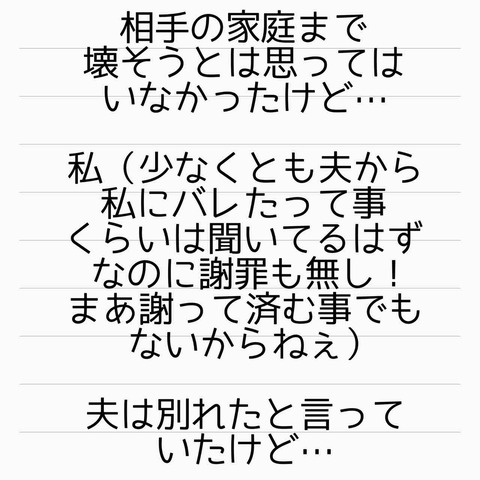 相手の家庭まで
壊そうとは思っては
いなかったけど…
私（少なくとも夫から
私にバレたって事
くらいは聞いてるはず
なのに謝罪も無し！
まあ謝って済む事でも
ないからねぇ）
夫は別れたと言って
いたけど…